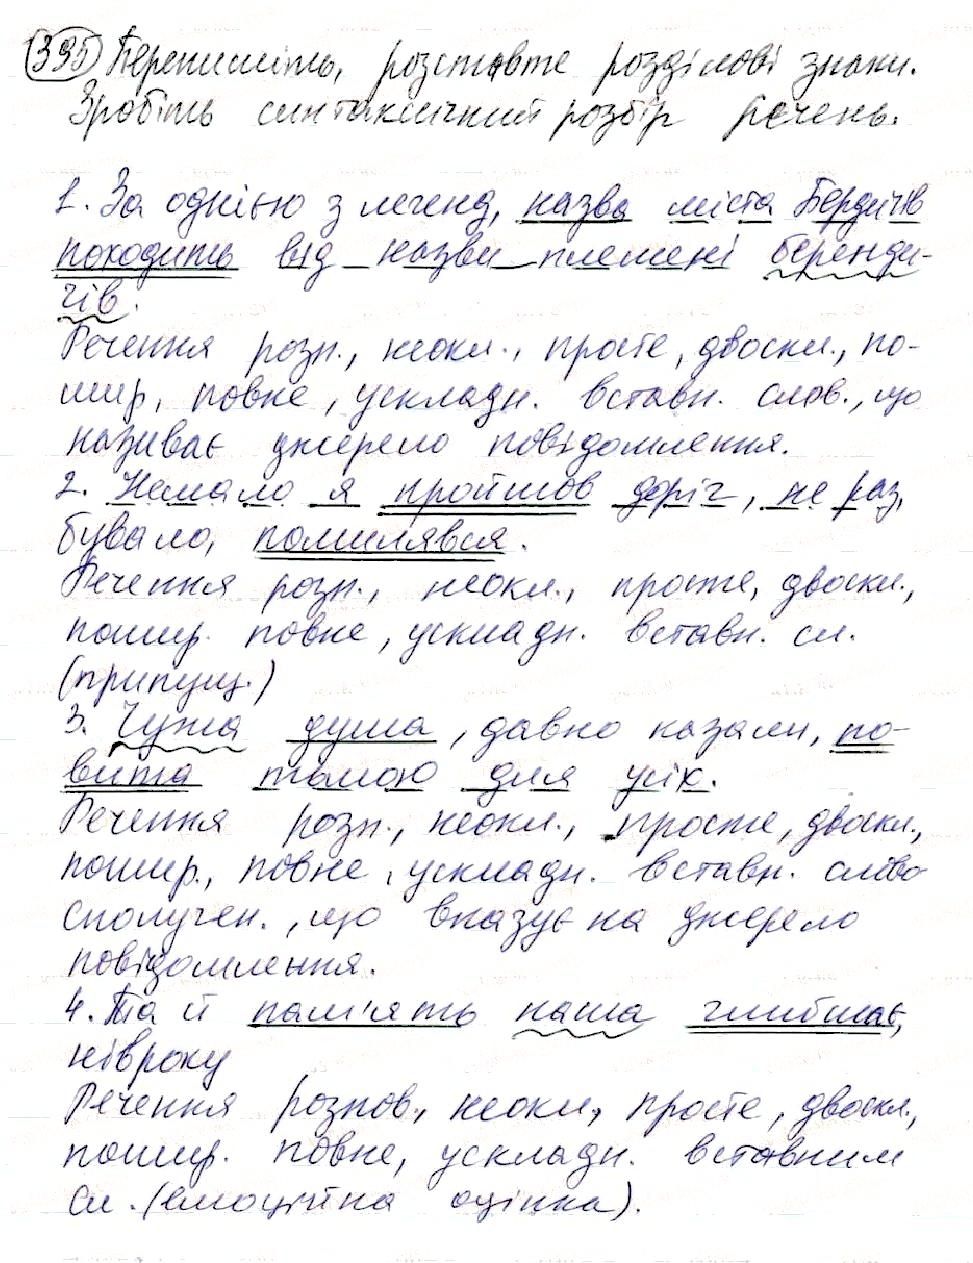 395 Перепишіть, розставте розділові знаки.
Зробіть синтаксичний розбір речень.
1. За однією з легенд, назва міста Бердичів
походить від назви племені беренди-
чів.
Речення розп., неокл., просте, двоскл., по-
шир, повне, ускладн. вставн. слов., що
називає джерело повідомлення.
2. Немало я пройшов доріг, не раз,
бувало, помилявся.
Речення розп., неокл., просте, двоскл.,
пошир. повне, ускладн. вставн. сл.
(припущ.)
3. Чужа душа, давно казали, по-
вита тьмою для усіх.
Речення розп., неокл., просте, двоскл.,
пошир., повне, ускладн. вставн. слово
сполучен., що вказує на джерело
повідомлення.
4. Та й пам'ять наша глибшає,
нівроку
Речення розпов., неокл., просте, двоскл.,
пошир. повне, ускладн. вставним
сл. (емоційна оцінка).